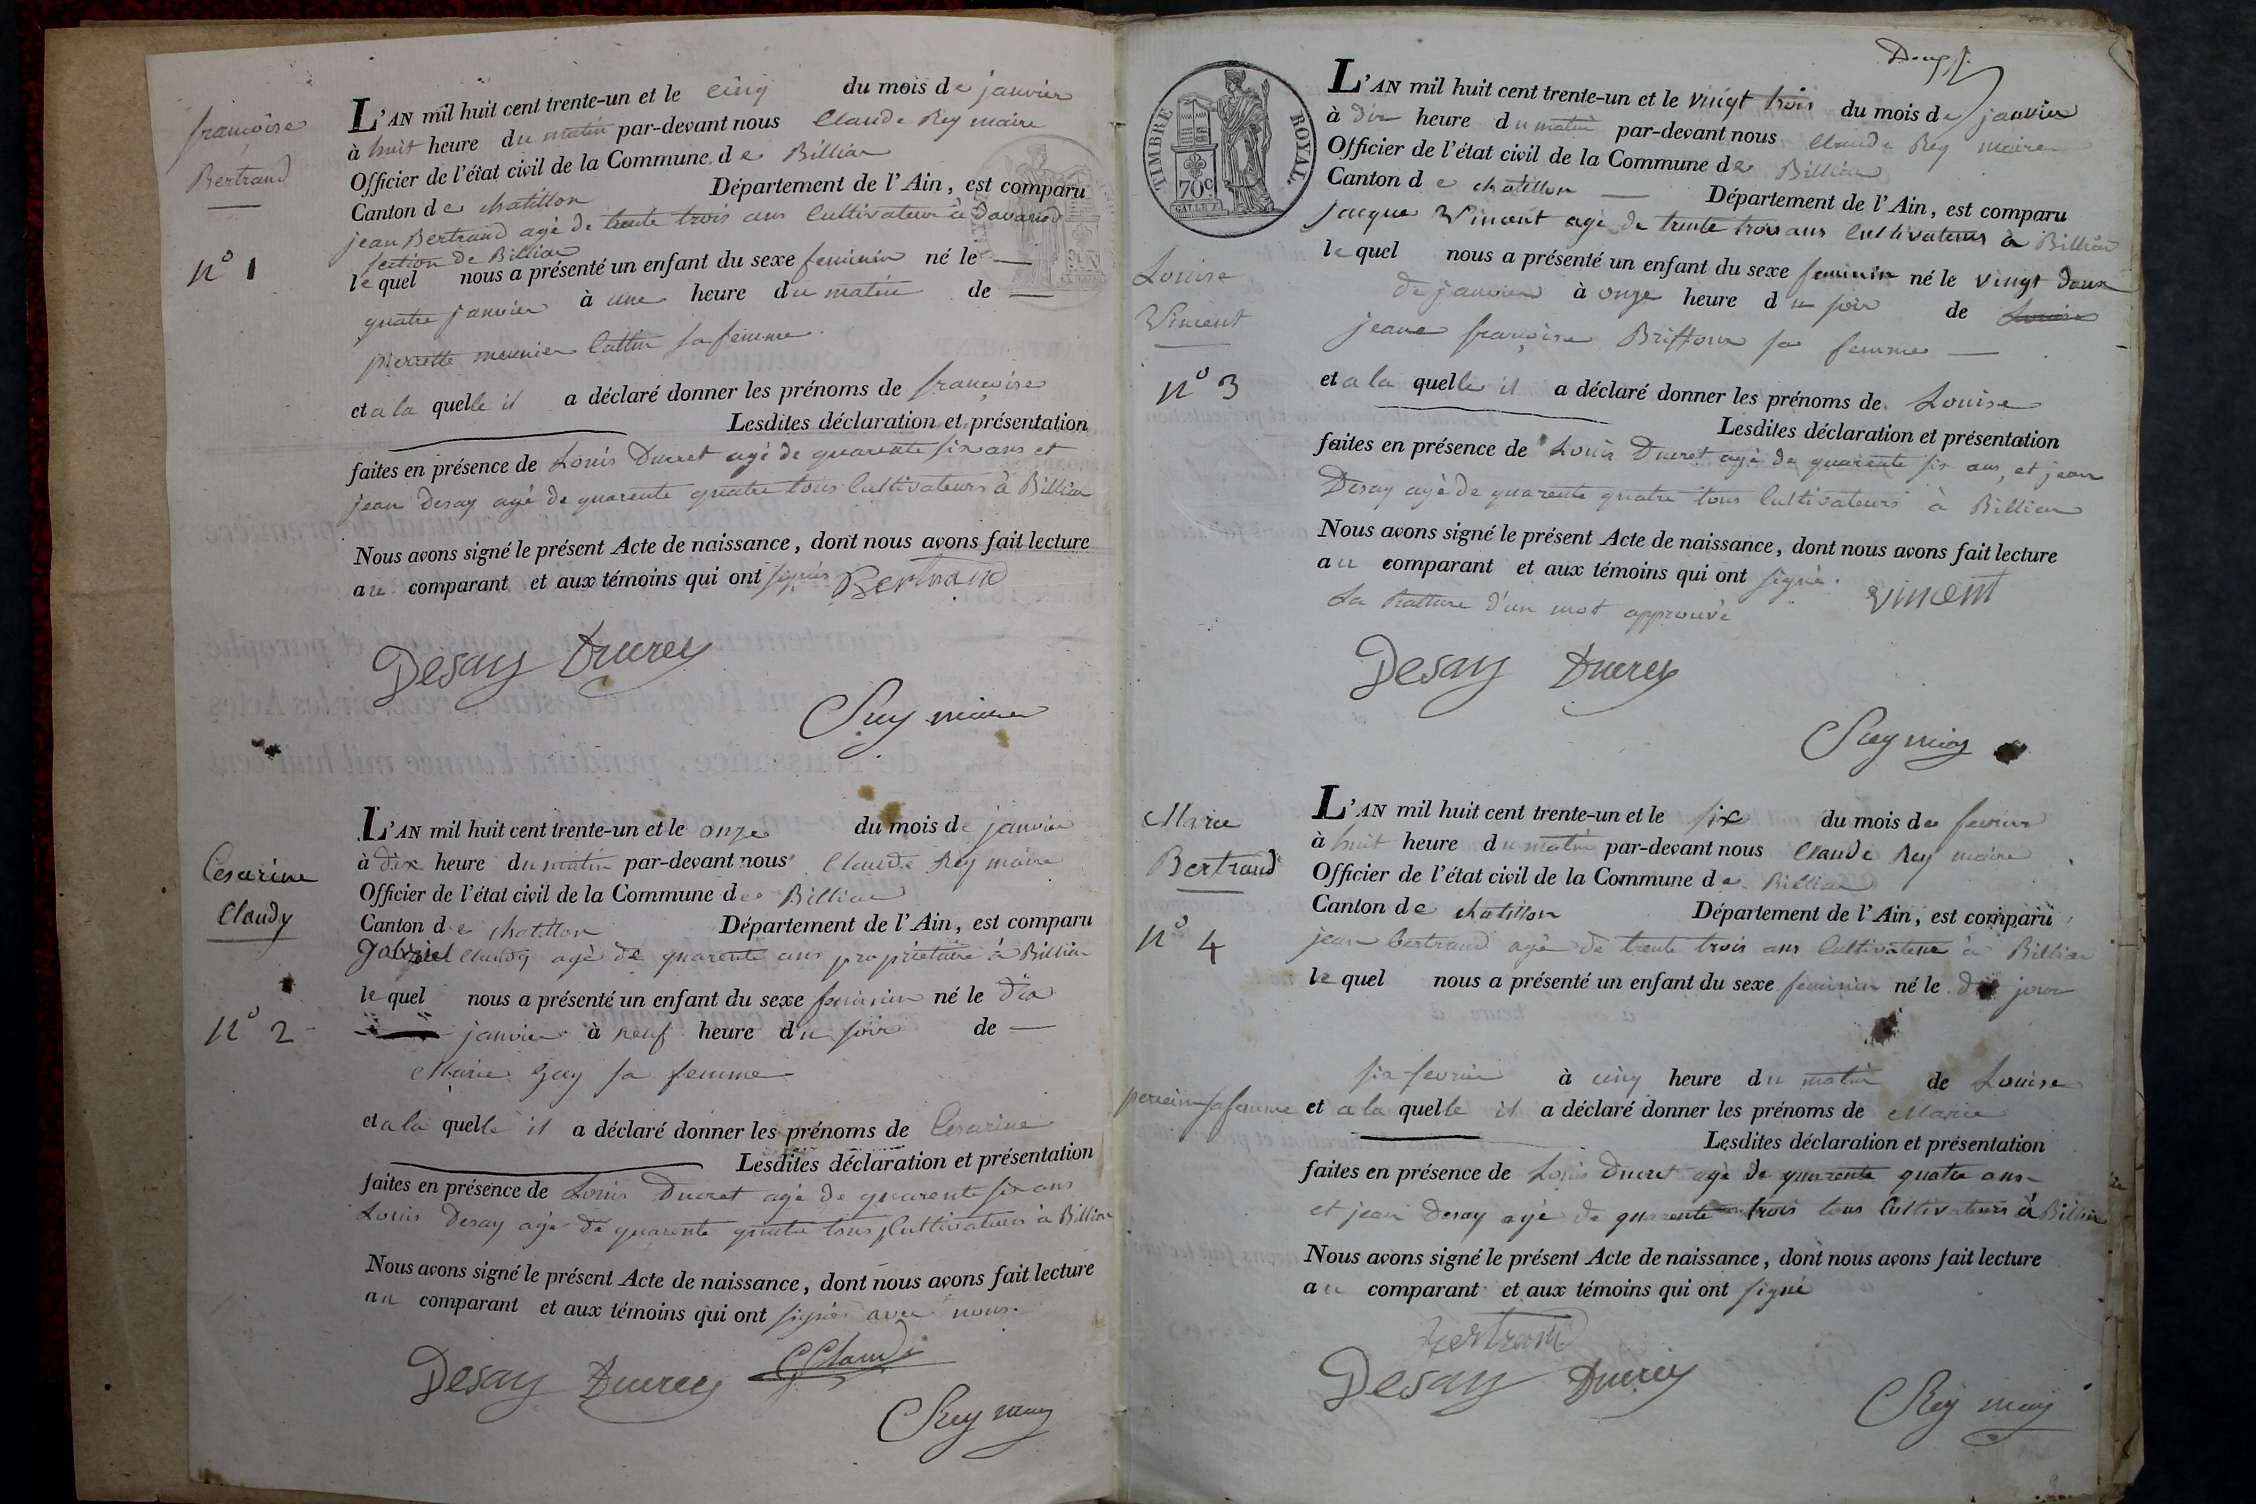 françoise
Bertrand
n° 1
L'AN mil huit cent trente-un et le cinq du mois de janvier
à huit heure du matin par-devant nous Claude Rey maire
Officier de l'état civil de la Commune de Billiat
Canton de chatillon Département de l'Ain, est comparu
jean Bertrand agé de trente trois ans Cultivateur à
section de Billiat
le quel nous a présenté un enfant du sexe feminin né le
quatre janvier à une heure du matin de
pierrette meunier Cattin sa femme
et a la quelle il a déclaré donner les prénoms de françoise
Lesdites déclaration et présentation
faites en présence de Louis Ducret agé de quarente six ans et
jean Desay agé de quarente quatre tous Cultivateurs à Billiat
Nous avons signé le présent Acte de naissance, dont nous avons fait lecture
au comparant et aux témoins qui ont signés Bertrand
Desay Ducret
C Rey maire
Cesarine
Claudy
n° 2
L'AN mil huit cent trente-un et le onze du mois de janvier
à dix heure du matin par-devant nous Claude Rey maire
Officier de l'état civil de la Commune de Billiat
Canton de chatillon Département de l'Ain, est comparu
Gabriel Claudy agé de quarente ans propriétaire à Billiat
le quel nous a présenté un enfant du sexe feminin né le dix
janvier à neuf heure du soir de
Marie Gay sa femme
et a la quelle il a déclaré donner les prénoms de Cesarine
Lesdites déclaration et présentation
faites en présence de Louis Ducret agé de quarente six ans
Louis Desay agé de quarente quatre tous Cultivateurs à Billiat
Nous avons signé le présent Acte de naissance, dont nous avons fait lecture
au comparant et aux témoins qui ont signés avec nous.
Desay Ducret G Claudy
C Rey maire
TIMBRE ROYAL.
70c
Louise
Vincent
n° 3
L'AN mil huit cent trente-un et le vingt trois du mois de janvier
à dix heure du matin par-devant nous Claude Rey maire
Officier de l'état civil de la Commune de Billiat
Canton de chatillon Département de l'Ain, est comparu
jacque Vincent agé de trente trois ans Cultivateurs à Billiat
le quel nous a présenté un enfant du sexe feminin né le vingt deux
de janvier à onze heure du soir de Louise
jeane françoise sa femme
et a la quelle il a déclaré donner les prénoms de Louise
Lesdites déclaration et présentation
faites en présence de Louis Ducret agé de quarente six ans, et jean
Desay agé de quarente quatre tous Cultivateurs à Billiat
Nous avons signé le présent Acte de naissance, dont nous avons fait lecture
au comparant et aux témoins qui ont signé. vincent
La rature d'un mot approuvé
Desay Ducret
C Rey maire
Marie
Bertrand
n° 4
L'AN mil huit cent trente-un et le six du mois de fevrier
à huit heure du matin par-devant nous Claude Rey maire
Officier de l'état civil de la Commune de Billiat
Canton de chatillon Département de l'Ain, est comparu
jean bertrand agé de trente trois ans Cultivateur à Billiat
le quel nous a présenté un enfant du sexe feminin né le dit jour
six fevrier à cinq heure du matin de Louise
sa femme et a la quelle il a déclaré donner les prénoms de Marie
Lesdites déclaration et présentation
faites en présence de Louis Ducret agé de quarente quatre ans
et jean Desay agé de quarente trois tous Cultivateurs à Billiat
Nous avons signé le présent Acte de naissance, dont nous avons fait lecture
au comparant et aux témoins qui ont signé
bertrand
Desay Ducret
C Rey maire